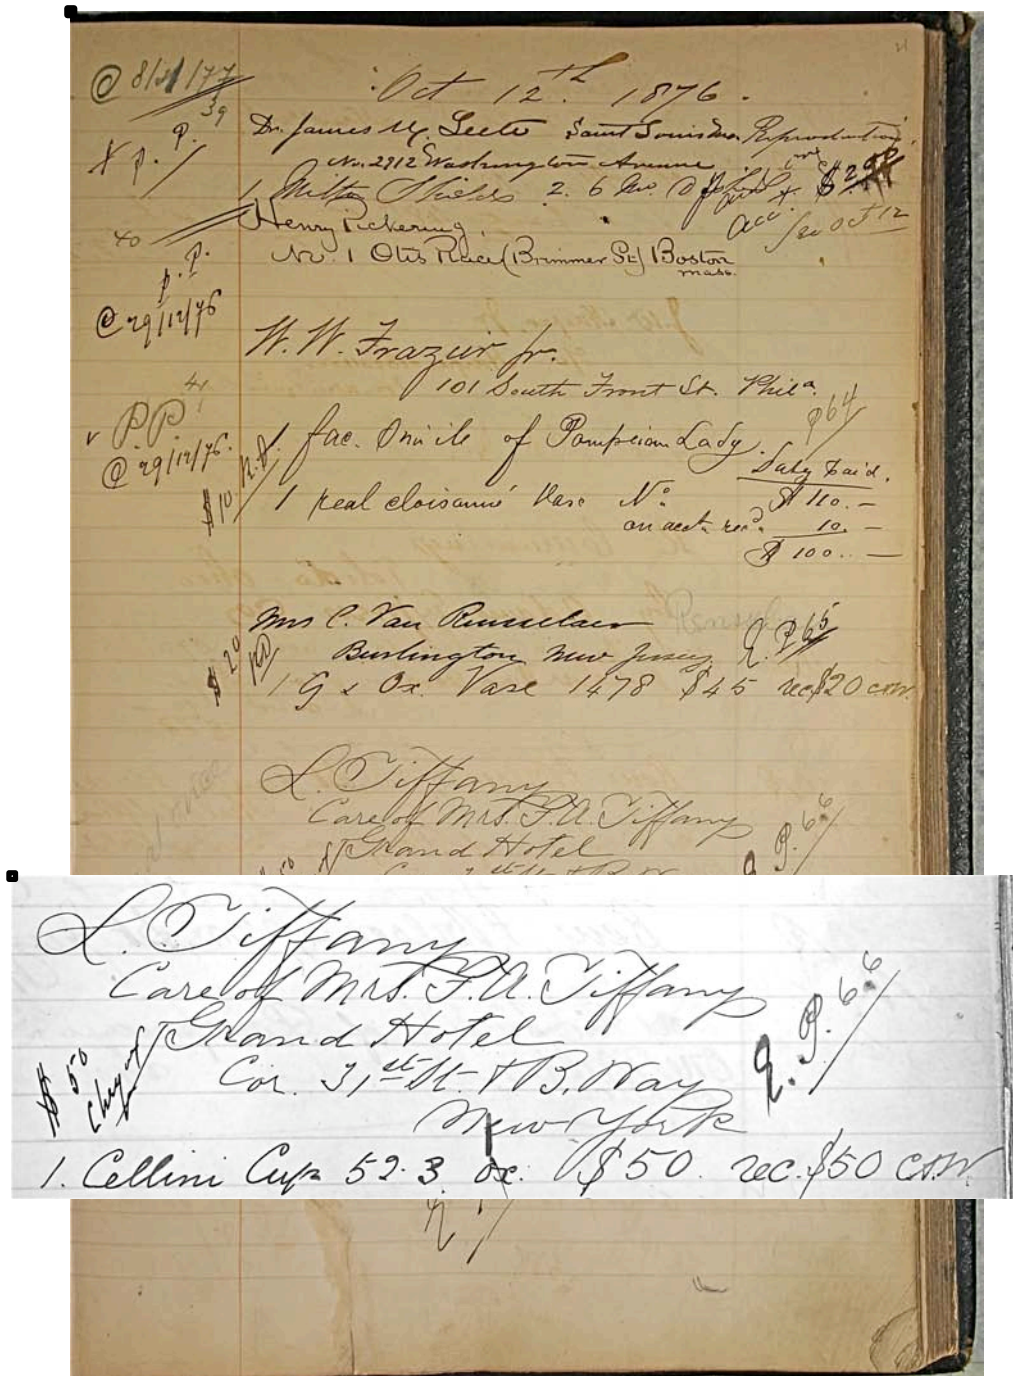 21
@ 8/21/77
Oct 12th. 1876.
39
Dr. James M. Leete Saint Louis Mo. Reproduction
X P. P.
No. 2912 Washington Avenue
1 Milton Shields 2. 6 $2
acct. Oct 12
40
Henry Pickering,
P. P.
No. 1 Otis Place (Brimmer St.) Boston
Mass.
@ 29/12/76
W. W. Frazier Jr.
101 South Front St. Phila.
41
P64
v P.P.
1 fac. Simile of Pompeian Lady.
@ 29/12/76.
Duty Paid.
$10
1 real cloisonné Vase No. $110.—
on acct. recd. 10.—
$100.—
Mrs C. Van Rensselaer
Burlington New Jersey. E. P. 65
$20
1 G & Ox. Vase 1478 $45 rec $20 CSW.
L. Tiffany
Care of Mrs. F. A. Tiffany
Grand Hotel
E. P. 66
L. Tiffany
Care of Mrs. F. A. Tiffany
Grand Hotel
E. P. 66
$50
Cor. 31st St. & B. Way
New York
1. Cellini Cup 52.3 ox. $50. rec. $50 CSW